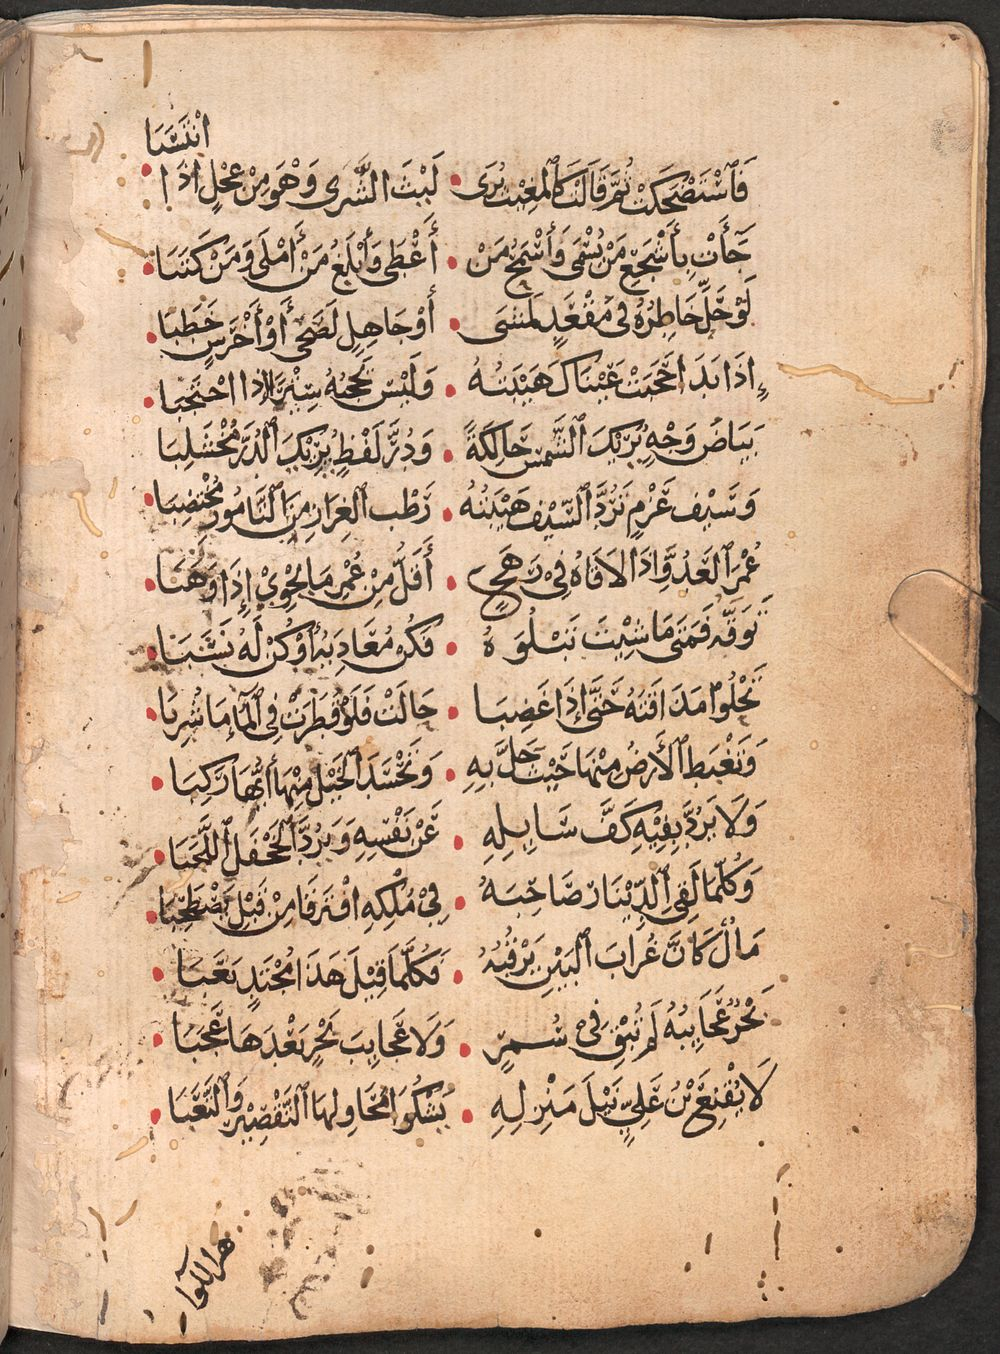 انْتَسَبَا
فَاسْتَضْحَكَتْ ثُمَّ قَالَتْ كَالْمُغِيثِ يُرَى • لَيْثَ الشَّرَى وَهْوَ مِنْ عِجْلٍ اذَا
جَأَتْ بِأَشْجَعِ مَنْ يُسْمَى وَأَسْمَحِ مَنْ • أَعْطَى وَأَبْلَغِ مَنْ أَمْلَى وَمَنْ كَتَبَا
لَوْ حَلَّ خَاطِرُهُ فِى مُقْعَدٍ لَمَشَى • أَوْ جَاهِلٍ لَصَحَى أَوْ أَخْرَسٍ خَطَبَا
إِذَا بَدَا حَجَبَتْ عَيْنَاكَ هَيْبَتُهُ • وَلَيْسَ يَحْجُبُهُ سِتْرٌ اِذَا احْتَجَبَا
بَيَاضُ وَجْهٍ يُرِيْكَ الشَّمْسَ حَالِكَةً • وَدُرُّ لَفْظٍ يُرِيْكَ الدُّرَّ مَخْشَلَبَا
وَسَيْفُ عَزْمٍ تَرُدُّ السَّيْفَ هَيْبَتُهُ • رَطْبَ الْغِرَارِ مِنَ التَّامُورِ مُخْتَضِبَا
عُمْرُ الْعَدُوِّ اِذَا لَاقَاهُ فِىْ رَهَجٍ • أَقَلُّ مِنْ عُمْرِ مَا يَحْوِىْ إِذَا وَهَبَا
تَوَقَّهُ فَمَتَى مَا شِيْتَ تَبْلُوَهُ • فَكُنْ مُعَادِيَهُ أَوْ كُنْ لَهُ نَشَبَا
تَحْلُوا مَذَاقَتُهُ حَتَّى إِذَا غَضِبَا • حَالَتْ فَلَوْ قَطَرَتْ فِى الْمَآءِ مَا شُرِبَا
وَتَغْبِطُ الْأَرْضُ مِنْهَا حَيْثُ حَلَّ بِهِ • وَتَحْسَدُ الْخَيْلُ مِنْهَا أَيُّهَا رَكِبَا
وَلَا يَرُدُّ بِفِيْهِ كَفَّ سَايِلِهِ • عَنْ نَفْسِهِ وَيَرُدُّ الْجَحْفَلَ اللَّجِبَا
وَكُلَّمَا لَقِىَ الدِّيْنَارُ صَاحِبَهُ • فِىْ مُلْكِهِ افْتَرَقَا مِنْ قَبْلِ يَصْطَحِبَا
مَالٌ كَأَنَّ غُرَابَ الْبَيْنِ يَرْقُبُهُ • فَكُلَّمَا قِيْلَ هَذَا مُجْتَدٍ نَعَبَا
بَحْرٌ عَجَايِبُهُ لَمْ تُبْقِ فِىْ سُمُرٍ • وَلَا عَجَايِبِ بَحْرٍ بَعْدَهَا عَجَبَا
لَا يُقْنِعُ بْنَ عَلِىٍّ نَيْلُ مَنْزِلِهِ • يَشْكُوا مُحَاوِلُهَا التَّقْصِيْرَ وَالتَّعَبَا
هز اللوآ